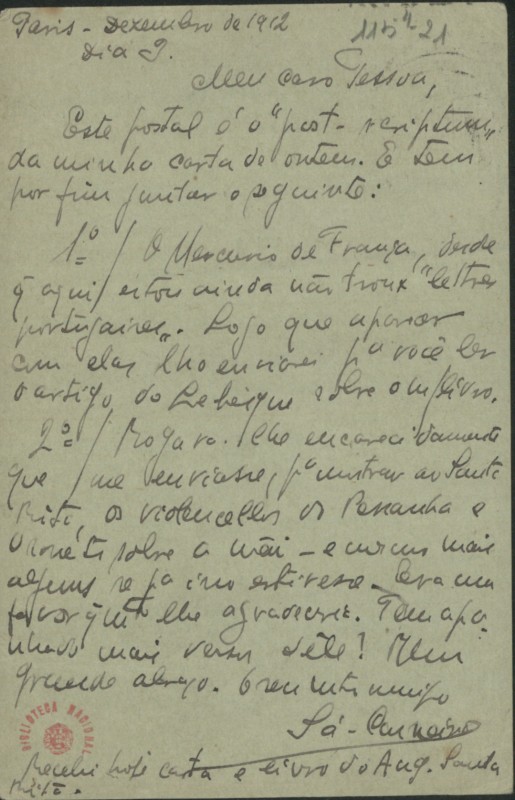 Paris - Dezembro de 1912
Dia 9.
115⁴-21
Meu caro Pessoa,
Este postal é o "post-scriptum"
da minha carta de ontem. E tem
por fim juntar o seguinte:
1º/ O Mercurio de França, desde
q aqui estou ainda não troux "lettres
portugaises". Logo que aparecer
com elas lho enviarei pª você ler
o artigo do Lebesgue sobre o m/ livro.
2º/ Rogava-lhe encarecidamente
que me enviasse, pª mostrar ao Santa
Rita, os violoncellos do Pessanha e
o soneto sobre a mãi - e mesmo mais
alguns se pª isso estivesse. Era um
favor q mto lhe agradeceria. Tem apa-
nhado mais versos dêle? Um
grande abraço. O seu mto amigo
Sá-Carneiro
BIBLIOTECA NACIONAL
Recebi hoje carta e livro do Aug. Santa
Rita.